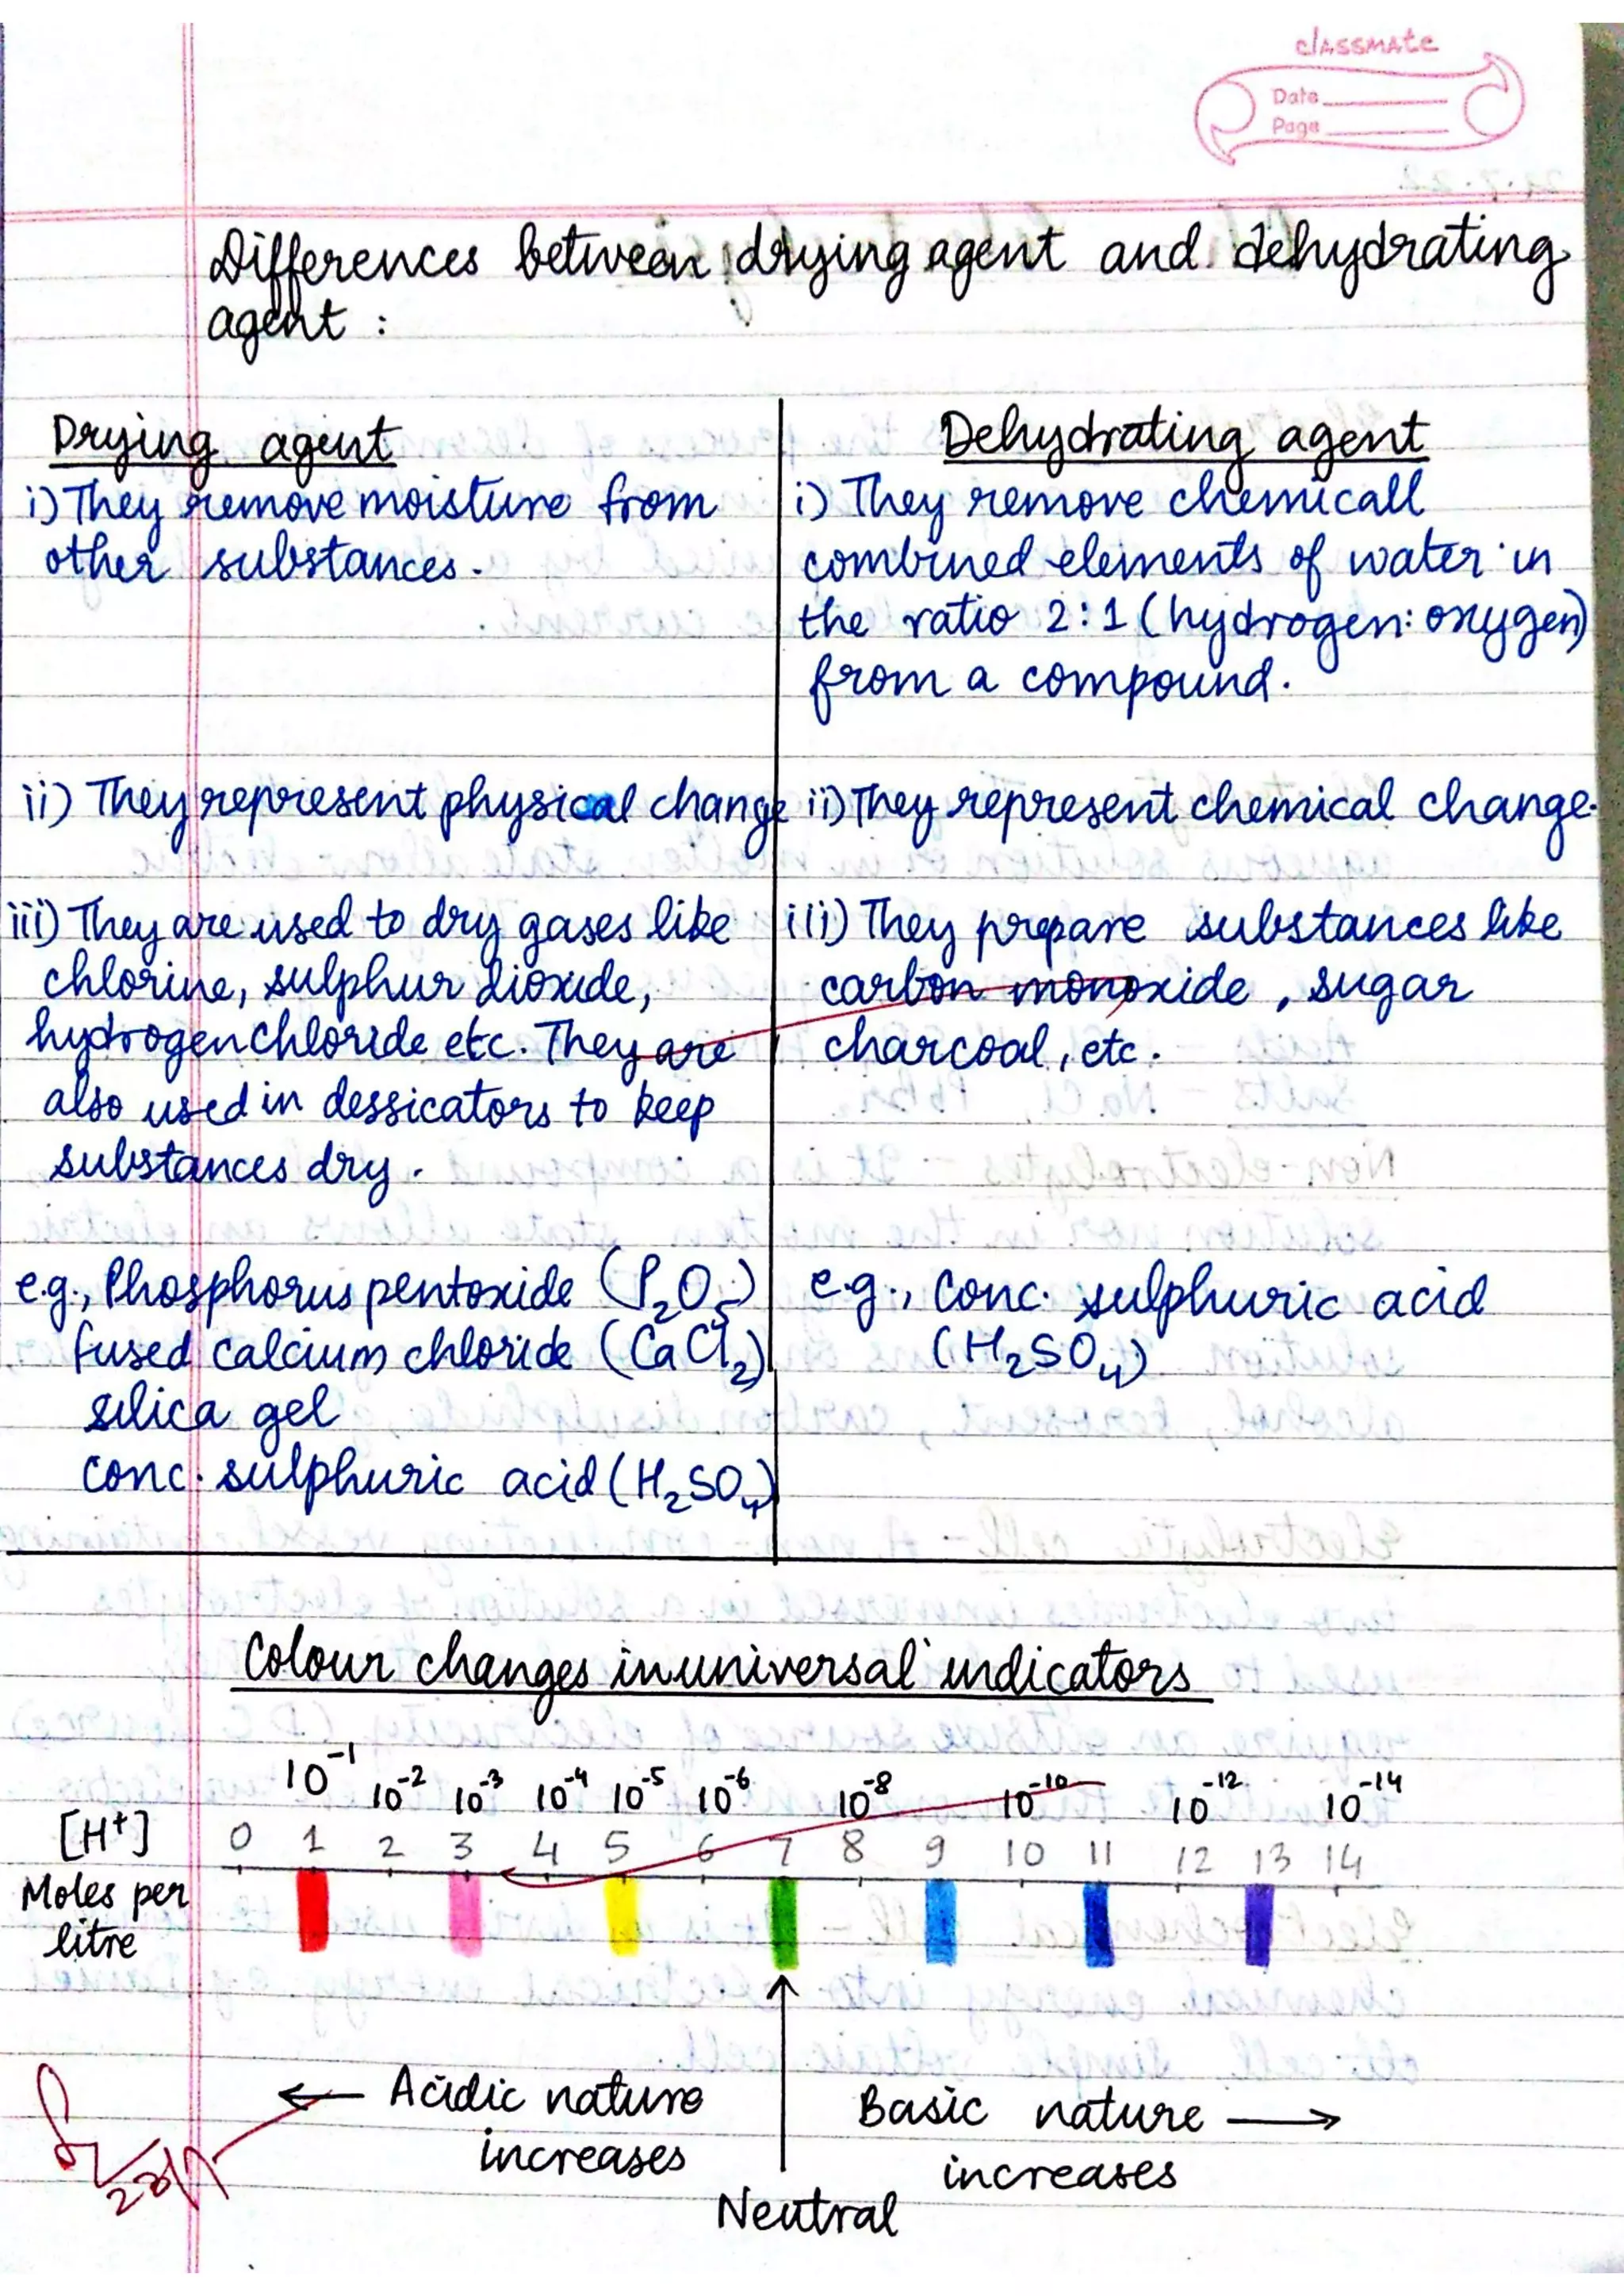 classmate
Date
Page
Differences between drying agent and dehydrating
agent :
Drying agent
i) They remove moisture from
other substances.
ii) They represent physical change
iii) They are used to dry gases like
chlorine, sulphur dioxide,
hydrogen chloride etc. They are
also used in dessicators to keep
substances dry.
e.g., Phosphorus pentoxide (P₂O₅)
fused calcium chloride (CaCl₂)
silica gel
conc. sulphuric acid (H₂SO₄)
Dehydrating agent
i) They remove chemicall
combined elements of water in
the ratio 2:1 (hydrogen: oxygen)
from a compound.
ii) They represent chemical change.
iii) They prepare substances like
carbon monoxide, sugar
charcoal, etc.
e.g., Conc. sulphuric acid
(H₂SO₄)
Colour changes in universal indicators
10⁻¹ 10⁻² 10⁻³ 10⁻⁴ 10⁻⁵ 10⁻⁶ 10⁻⁸ 10⁻¹⁰ 10⁻¹² 10⁻¹⁴
[H⁺] 0 1 2 3 4 5 6 7 8 9 10 11 12 13 14
Moles per
litre
← Acidic nature
increases
Basic nature →
increases
Neutral